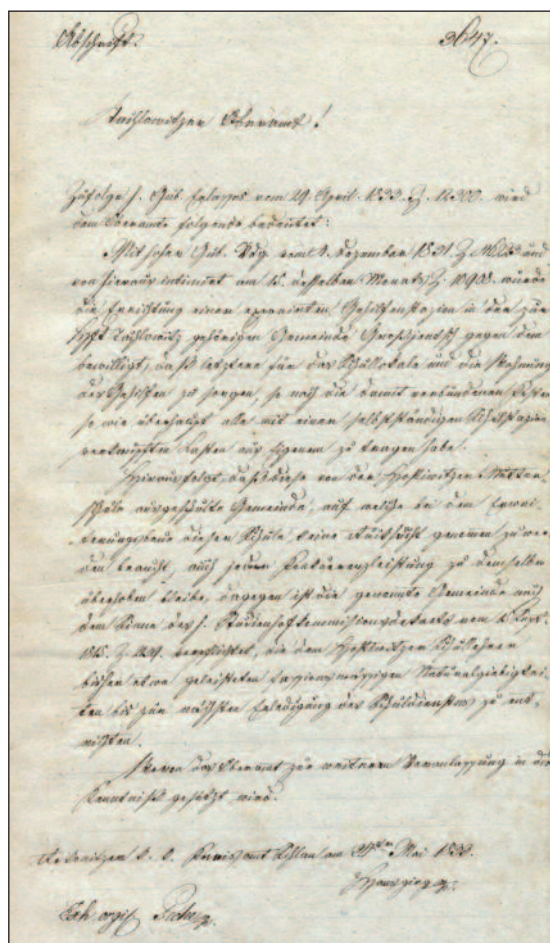 Abschrift. 3647.
Tuchlowitzer Oberamt!
Zufolge h. Gub. Erlasses vom 29. April 1833 Z. 12300. wird
dem Oberamte folgendes bedeutet:
Mit hoher Gub. Vdg. vom Dezember 1831 Z. und
von hieraus intimirt am 15. desselben Monats Z. 10908. wurde
die Errichtung einer exponirten Gehilfenstazion in der zur
Hft gehörigen Gemeinde gegen dem
bewilligt, daß letztere für das Schullokale und die Wohnung
des Gehilfen zu sorgen, so wie die damit verbundenen Kosten
so wie überhaupt alle mit einer selbstständigen Schulstazion
verknüpften Lasten aus eigenem zu tragen habe.
Hieraus folgt, daß diese von der Hostiwitzer Mutter-
schule ausgeschulte Gemeinde, auf welche bei dem Erwei-
terungsbaue dieser Schule, keine Rücksicht genomen zu wer-
den braucht, auch jeder Konkurrenzleistung zu demselben
überhoben bleibe, dagegen ist die genannte Gemeinde nach
dem Sinne des h. Studienhofkommissionsdekrets vom
Z. verpflichtet, die dem Hostiwitzer Schullehrer
bisher etwa geleisteten fassionsmässigen Naturalgiebigkei-
ten bis zur nächsten Erledigung des Schuldienstes zu ent-
richten.
Wovon das Oberamt zur weitern Veranlassung in die
Kenntniß gesetzt wird.
Rakonitzer k. k. Kreisamt Schlan am 24ten Mai 1833.